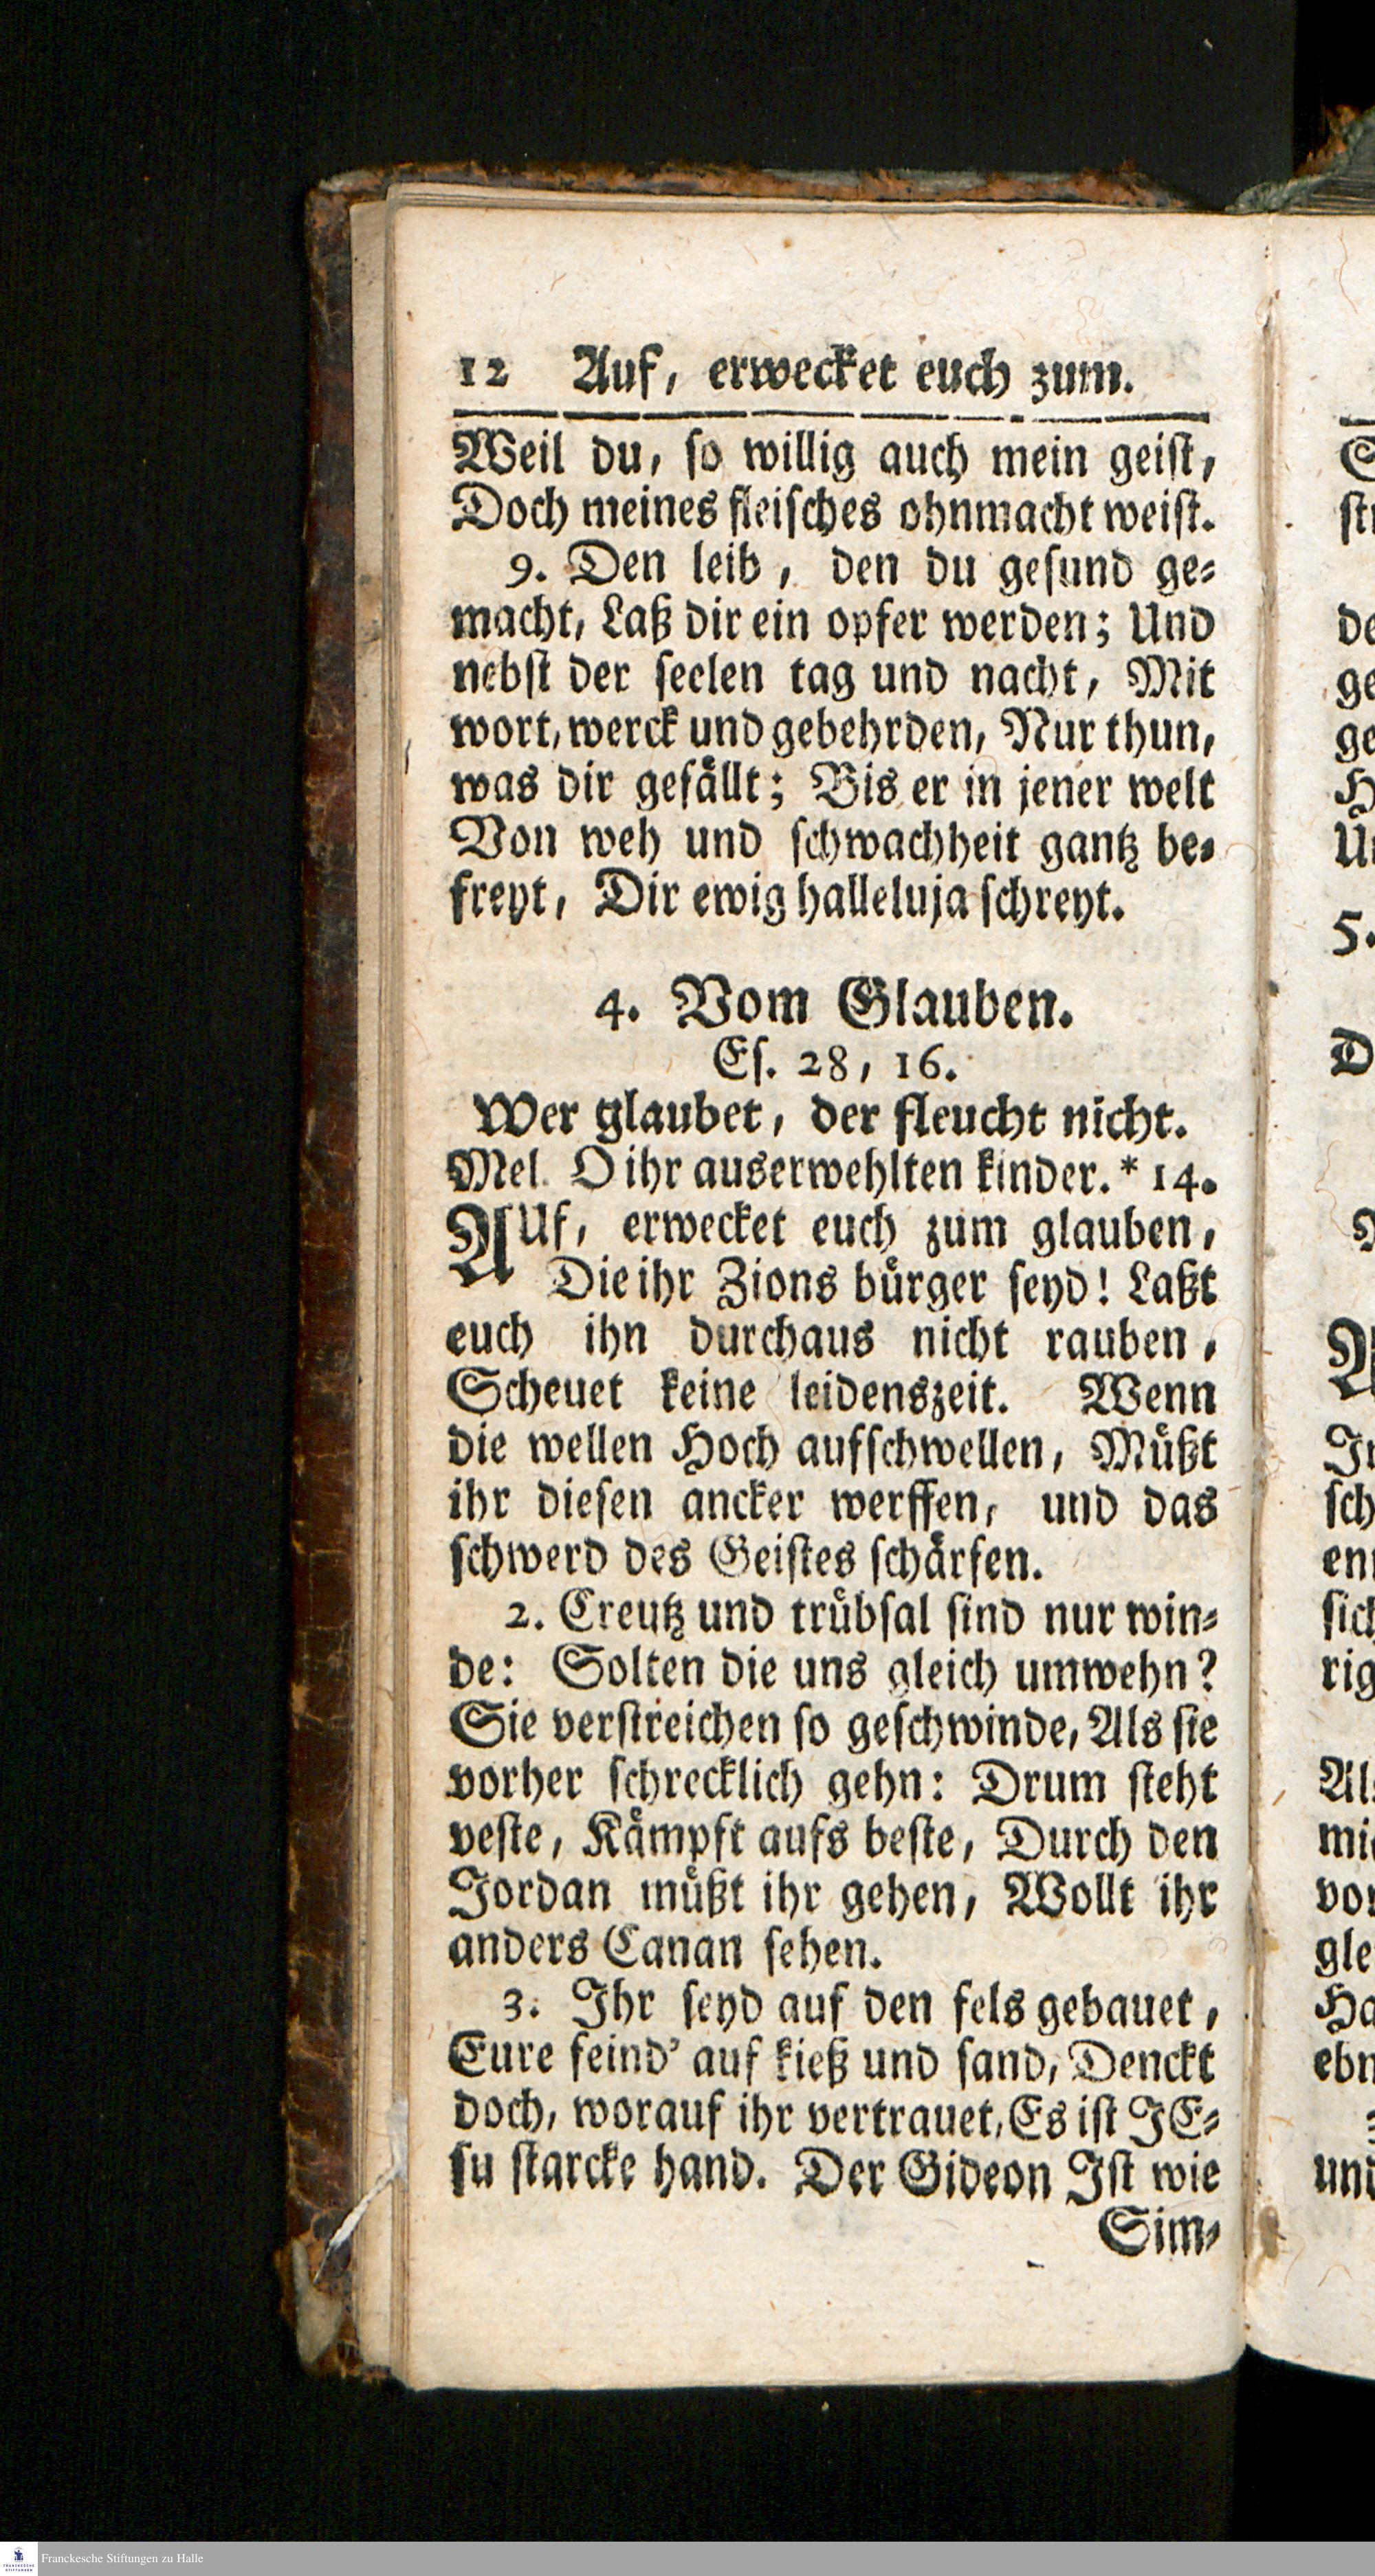 12 Auf, erwecket euch zum.
Weil du, ſo willig auch mein geiſt,
Doch meines fleiſches ohnmacht weiſt.
9. Den leib, den du geſund ge⸗
macht, Laß dir ein opfer werden; Und
nebſt der ſeelen tag und nacht, Mit
wort, werck und gebehrden, Nur thun,
was dir gefällt; Bis er in jener welt
Von weh und ſchwachheit gantz be⸗
freyt, Dir ewig halleluja ſchreyt.
4. Vom Glauben.
Eſ. 28, 16.
Wer glaubet, der fleucht nicht.
Mel. O ihr auserwehlten kinder. * 14.
AUf, erwecket euch zum glauben,
Die ihr Zions bürger ſeyd! Laßt
euch ihn durchaus nicht rauben,
Scheuet keine leidenszeit. Wenn
die wellen Hoch aufſchwellen, Müßt
ihr dieſen ancker werffen, und das
ſchwerd des Geiſtes ſchärfen.
2. Creutz und trübſal ſind nur win⸗
de: Solten die uns gleich umwehn?
Sie verſtreichen ſo geſchwinde, Als ſie
vorher ſchrecklich gehn: Drum ſteht
veſte, Kämpft aufs beſte, Durch den
Jordan müßt ihr gehen, Wollt ihr
anders Canan ſehen.
3. Ihr ſeyd auf den fels gebauet,
Eure feind' auf kieß und ſand, Denckt
doch, worauf ihr vertrauet, Es iſt JE⸗
ſu ſtarcke hand. Der Gideon Iſt wie
Sim⸗
Franckesche Stiftungen zu Halle